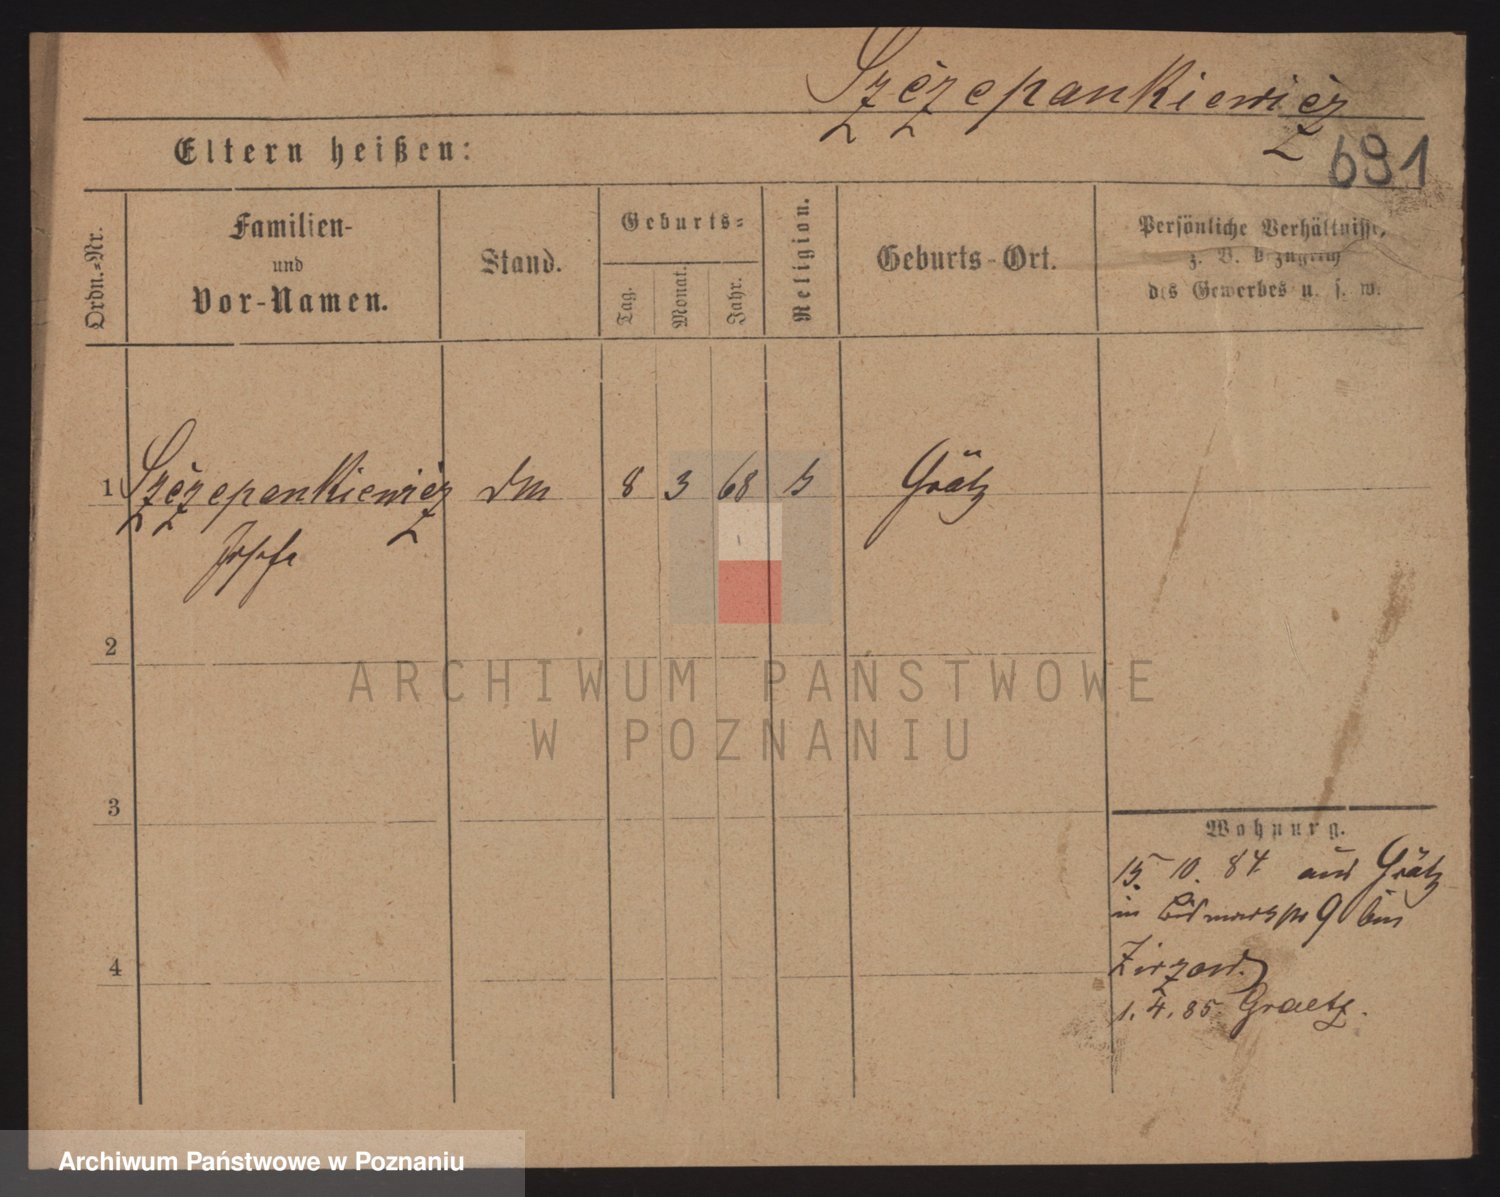 Szczepankiewicz
691
Eltern heißen:
Ordn.-Nr.
Familien-
und
Vor-Namen.
Stand.
Geburts-
Tag.
Monat.
Jahr.
Religion.
Geburts-Ort.
Persönliche Verhältnisse,
z. B. bezüglich
des Gewerbes u. s. w.
1 Szczepankiewicz
8 3 68
Grätz
Josefa
2
ARCHIWUM PAŃSTWOWE
W POZNANIU
3
Wohnung.
15. 10. 84 aus Grätz
in 9 bei
4
1. 4. 85 Graetz.
Archiwum Państwowe w Poznaniu